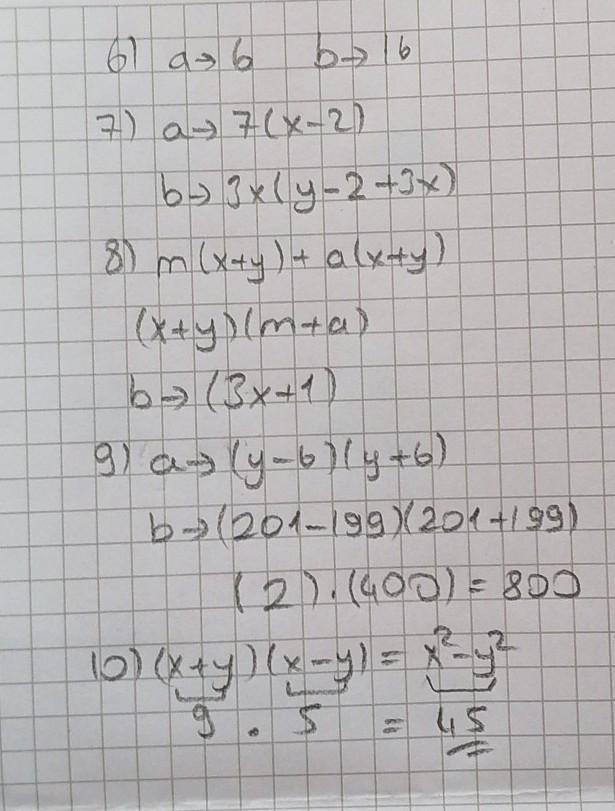 6) a→6 b→16
7) a→7(x-2)
b→3x(y-2+3x)
8) m(x+y)+a(x+y)
(x+y)(m+a)
b→(3x+1)
9) a→(y-6)(y+6)
b→(201-199)(201+199)
(2).(400)=800
10) (x+y)(x-y)=x²-y²
9 . 5 = 45